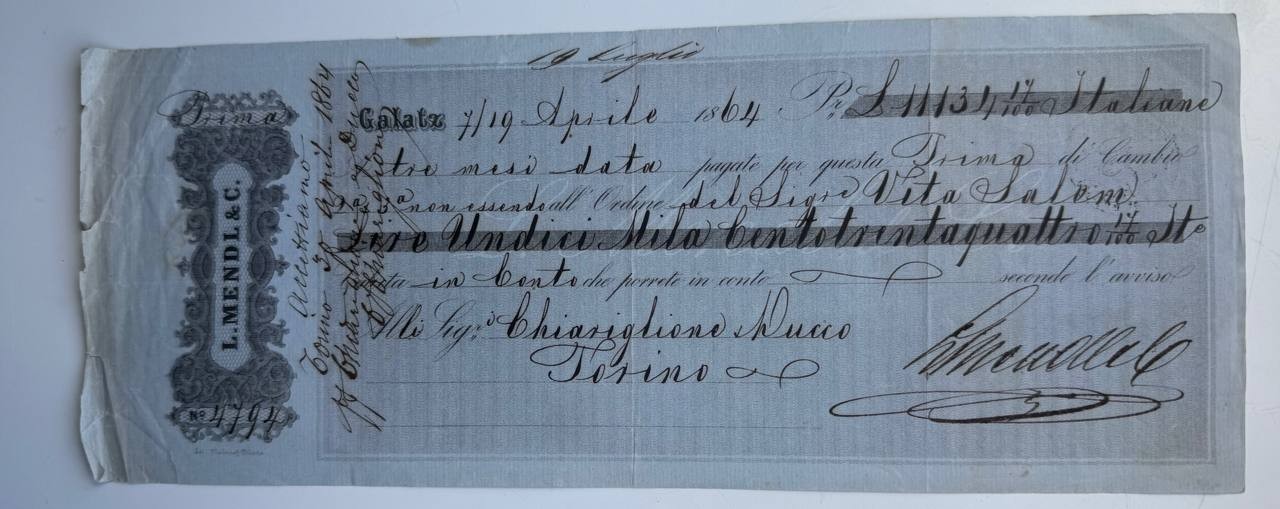 19 Luglio
Prima
L. MENDL & C.
No 4794
Galatz 7/19 Aprile 1864 Pr £ 11134 17/100 Italiane
tre mesi data pagate per questa Prima di Cambio
2a 3a non essendo all' Ordine del Sigre Vita Salom
Lire Undici Mila Centotrentaquattro 17/100 Ite
in Conto che porrete in conto secondo l'avviso
Alli Sigri Chiariglione Mucco
Torino
Torino 30 April 1864